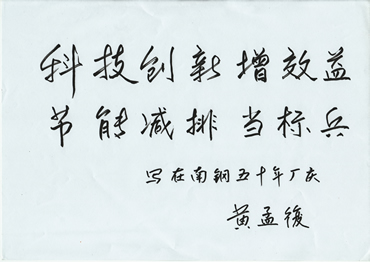 科技创新增效益
节能减排当标兵
写在南钢五十年厂庆
黄孟復